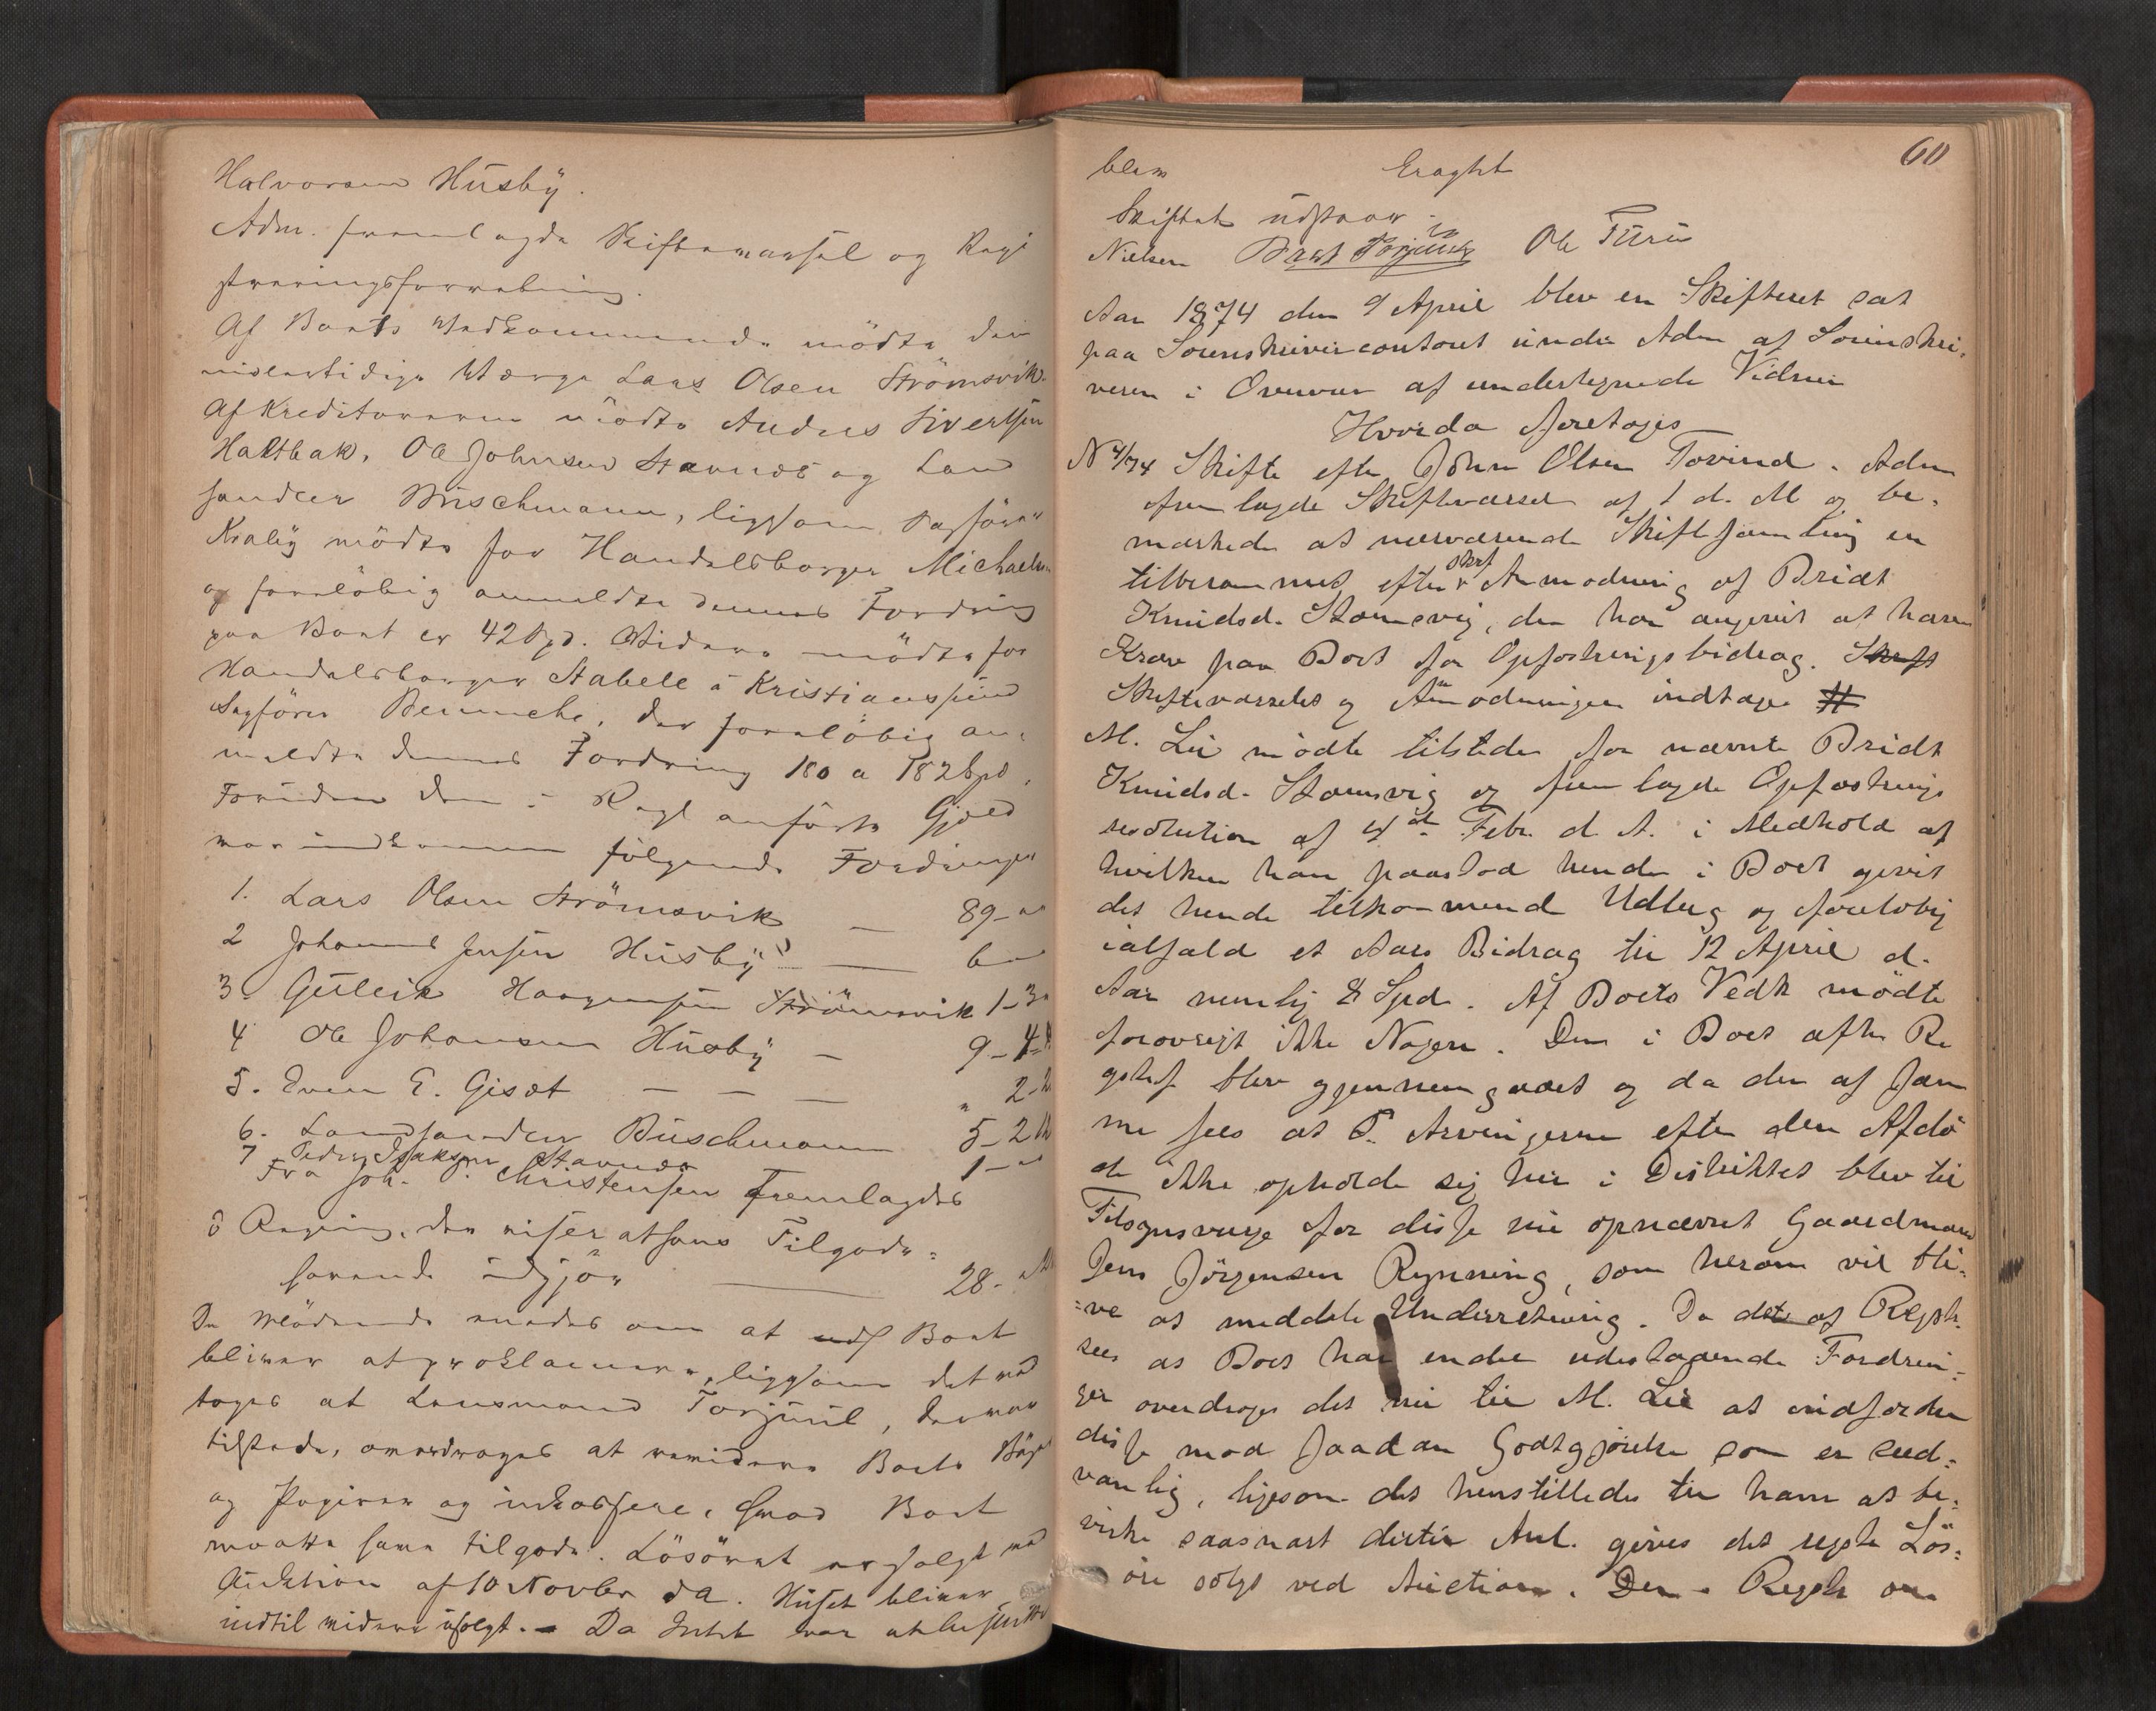 Halvorsen Husby.
Adm. fremlagde Skiftevarsel og Regi
streringsforretning.
Af Boets Vedkommende mødte den
midlertidige Værge Lars Olsen Strömsvik.
Af Kreditorerne mödte Anders Sivertsen
Haltbak, Ole Johnsen Stavnes og Lan
handler Buschmann, ligesom Sagförer
Kraby mödte for Handelsborger Michaelsen
og foreløbig anmeldte dennes Fordring
paa Boet er 42 Spd. Videre mödte for
Handelsborger Stabell i Kristianssund
Sagförer Benneche, der foreløbig an-
meldte dennes Fordring 180 a 182 Spd.
Foruden den i Regt anførte Gjæld
var indkommen følgende Fordringer
1. Lars Olsen Strömsvik — 89-
2 Johannes Jensen Husby — 6
3. Gulleik Haagensen Strömsvik 1-3
4 Ole Johansen Husby — 9-4-
5. Even E. Gisöt — — — " 2-
6. Landhandler Buschmann 5-2
7 Peder Isaksen Stavnes 1-
Fra Joh. P. Christensen Fremlagdes
Regning, der viser at hans Tilgode-
havende udgjör — 28-
De Mødende enedes om at Boet
bliver at proklamere, ligesom det ved
toges at Lensmand Torjul, der var
tilstede, overdroges at revidere Boets Bøger
og Papirer og inkassere, hvad Boet
maatte have tilgode. Lösöret er solgt ved
Auktion af 10 Novbr d A. Huset bliver
indtil videre usolgt. - Da Intet var at
60
blev Eragtet
Skiftet udstaar.
Nielsen Ole Furu
Aar 1874 den 9 April blev en Skifteret sat
paa Sorenskrivercontoret under Adm af Sorenskri-
veren i Overvær af undertegnede Vidner
Hvorda foretoges
N 4/74 Skifte efter John Olsen Tovind. Adm
fremlagde Skiftevarsel af 1 d. M og be-
mærkede at nærværende Skiftesamling er
tilberammet efter skrf Anmodning af Bridt
Knudsd. Stomsvig, der har angivet at have
Krav paa Boet for Opfostringsbidrag. Skrft
Skiftevarselet og Anmodningen indtages #
M. Lie mødte tilstede for nævnte Bridt
Knudsd. Stomsvig og fremlagde Opfostrings
resolution af 4de Febr. d A. i Medhold af
hvilken han paastod hende i Boet givet
det hende tilkommend Udlæg og foreløbig
ialfald et Aars Bidrag til 12 April d.
Aar nemlig 8 Spd. Af Boets Vedk mødte
forøvrigt ikke Nogen. Den i Boet afh. Re
gstrf blev gjennemgaaet og da den af sam
me sees at Arvingerne efter den Afdø
de ikke opholde sig her i Distriktet blev til
Tilsynsverge for disse nu opnævnt Gaardmand
Jens Jörgensen Rynning, som herom vil bli-
=ve at meddele Underretning. Da det af Regstr.
sees at Boet har endel udestaaende Fordrin-
ger overdroges det nu til M. Lie at indfordre
disse mod saadan Godtgjörelse som er sed-
vanlig, ligesom det henstilledes til ham at be-
virke saasnart dertil Anl. gives det regstr Lös-
öre solgt ved Auction. Den i Regstr om